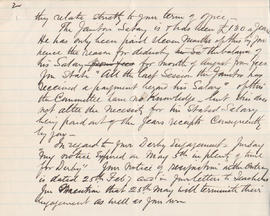 2
they relate strictly to your term of office -
The Janitors Salary is & has been £130 a year
He has only been paid eleven months of the year
hence the reason for deducting the balance of
his Salary for month of August from fees
You State "All the last Session the Janitor has
received a payment besides his Salary" of this
the Committee have no Knowledge, but this does
not alter the necessity for his Stated Salary
being paid out of the years receipts Consequently
by you -
In regard to your Derby Engagement - Judging
my notice expired on May 5th in plenty of time
for Derby. Your Notice of resignation
is dated 25th Feby and in your letter to
you mention that 25th May will terminate their
engagement as well as your own